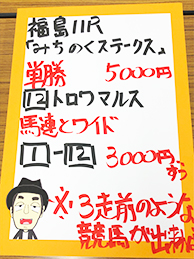 福島11R
『みちのくステークス』
単勝 5000円
12トロワマルス
馬連とワイド
1-12 3000円
ずつ
※3走前のような
競馬が出来